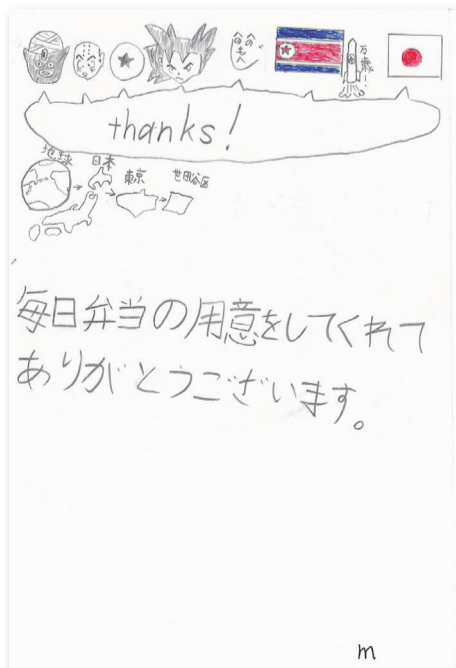 へのへのもへ
万歳ー
thanks!
地球
日本
東京
世田谷区
毎日弁当の用意をしてくれて
ありがとうございます。
m